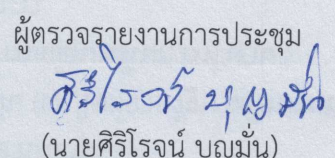 ผู้ตรวจรายงานการประชุม
ศิริโรจน์ บุญมั่น
(นายศิริโรจน์ บุญมั่น)